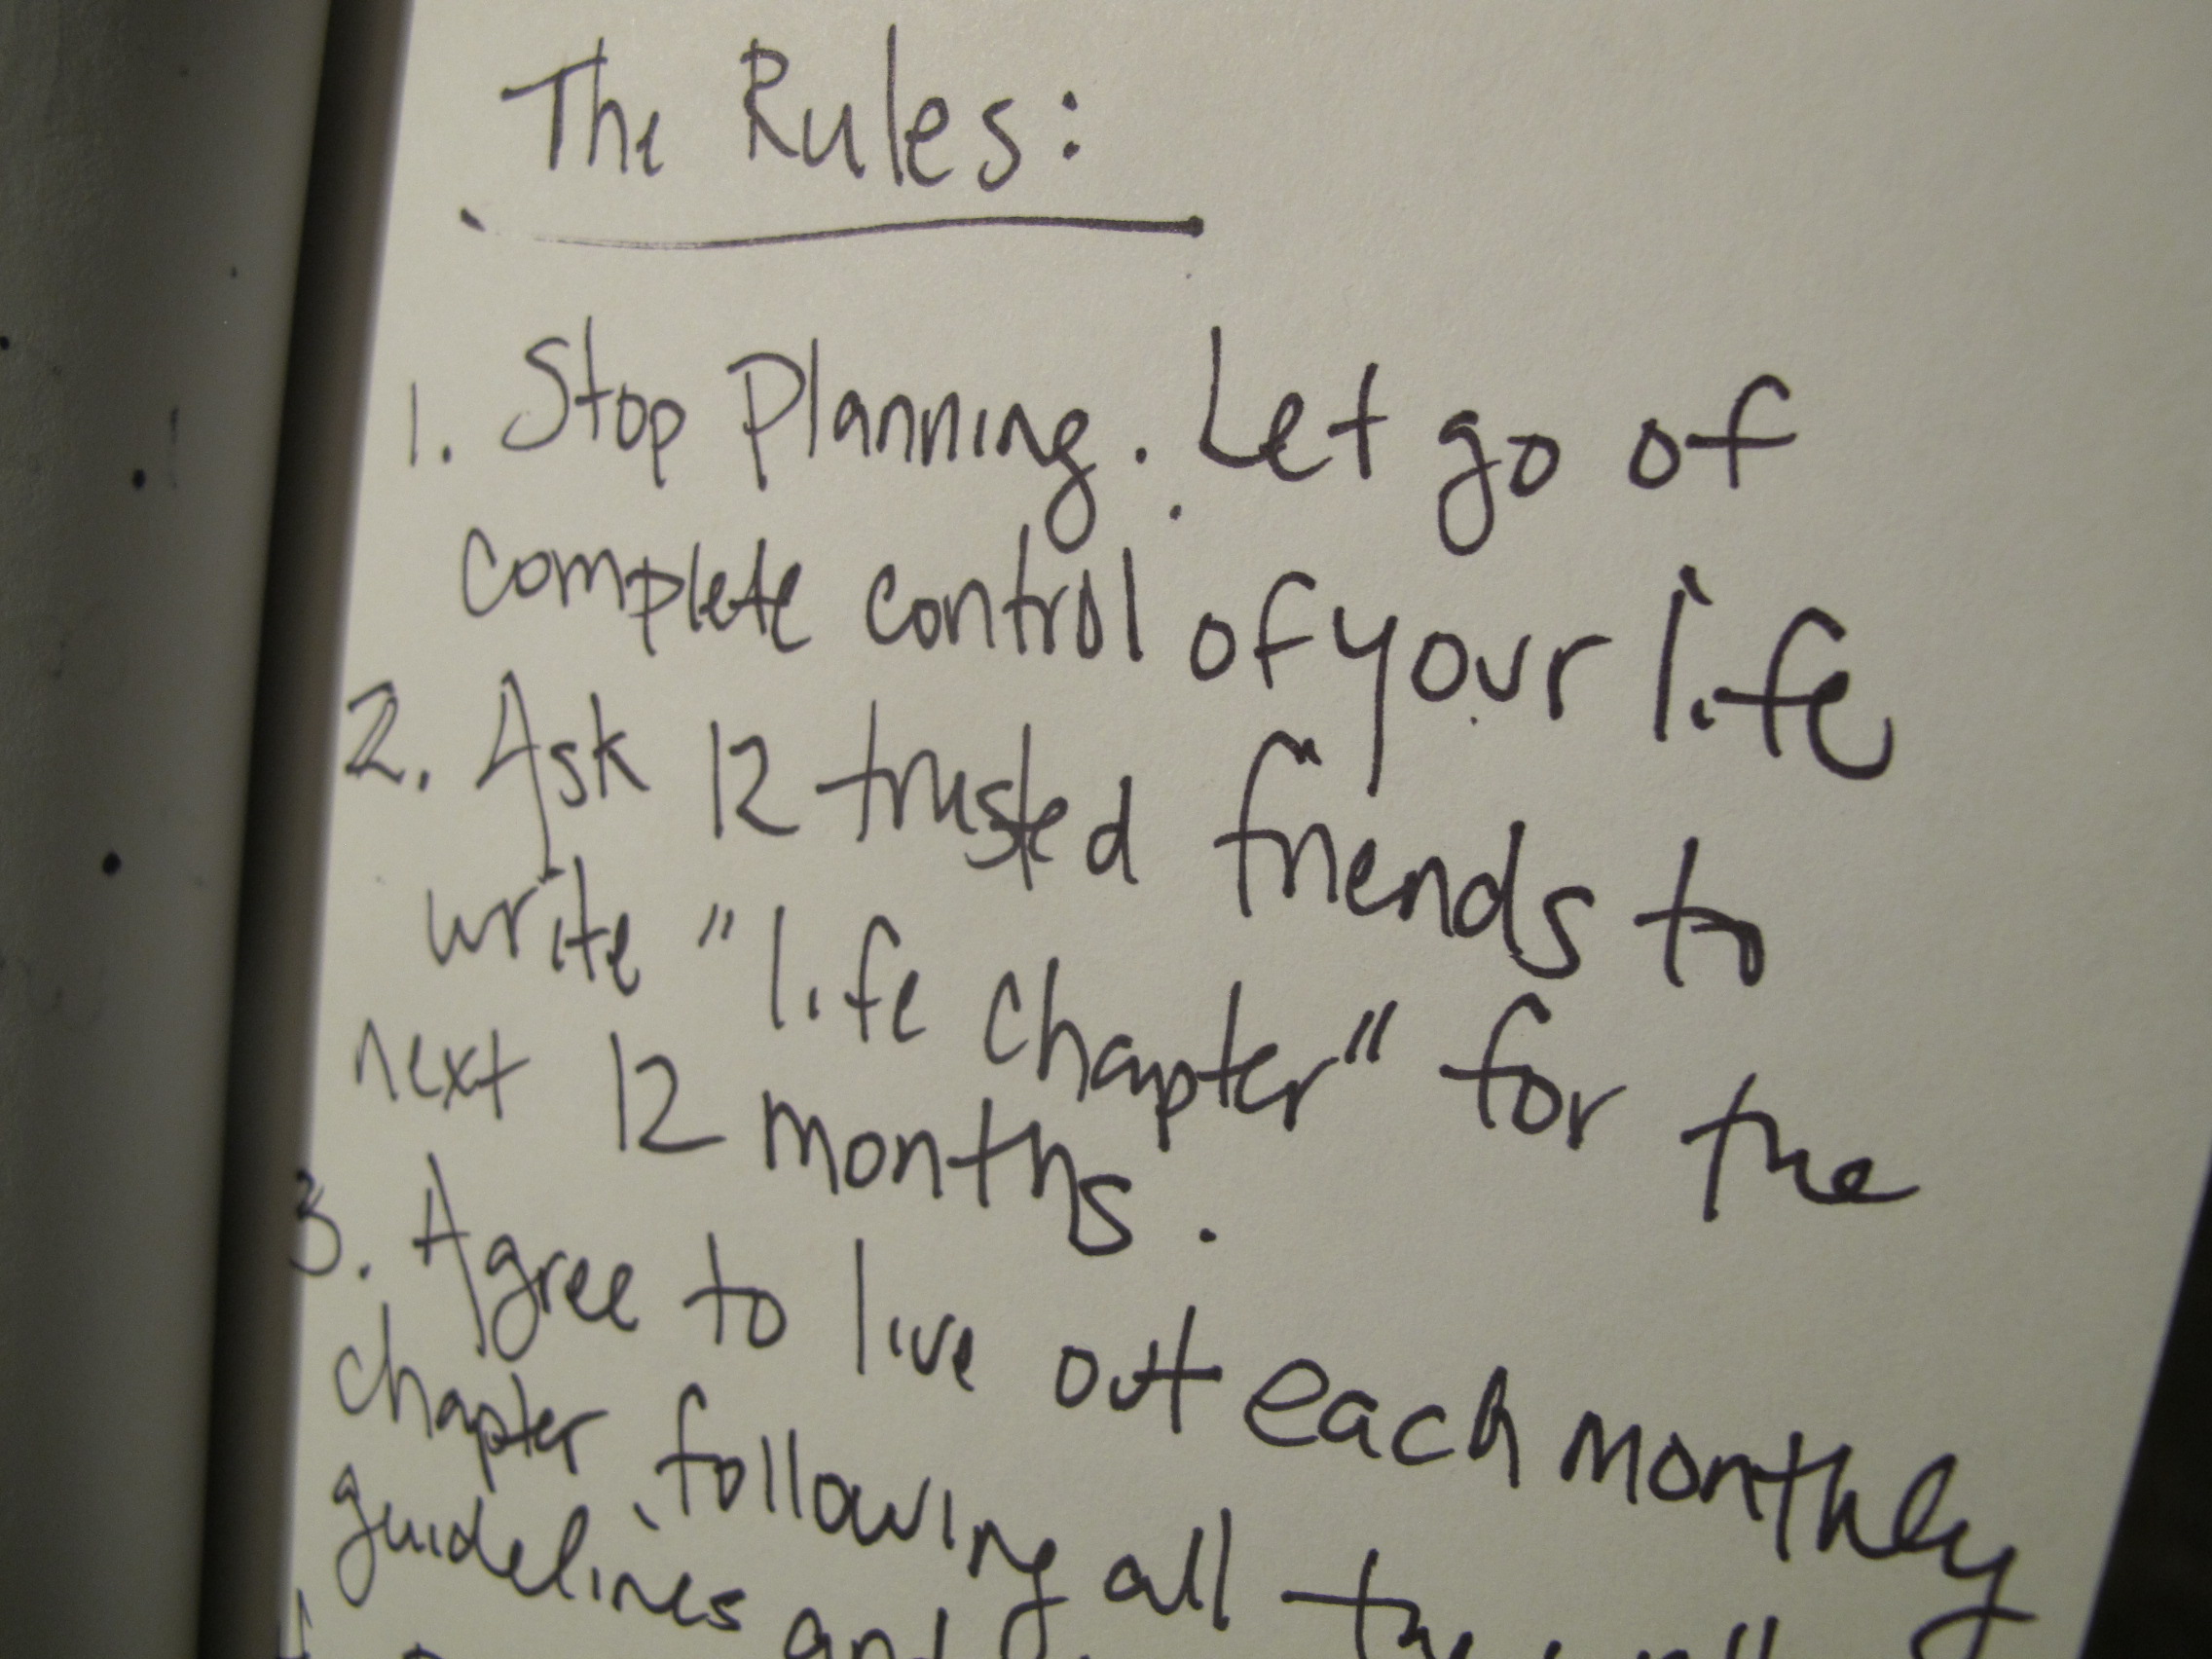 The Rules:
1. Stop Planning. Let go of
complete control of your life
2. Ask 12 trusted friends to
write "life chapter" for the
next 12 months.
3. Agree to live out each monthly
chapter following all the
guidelines and